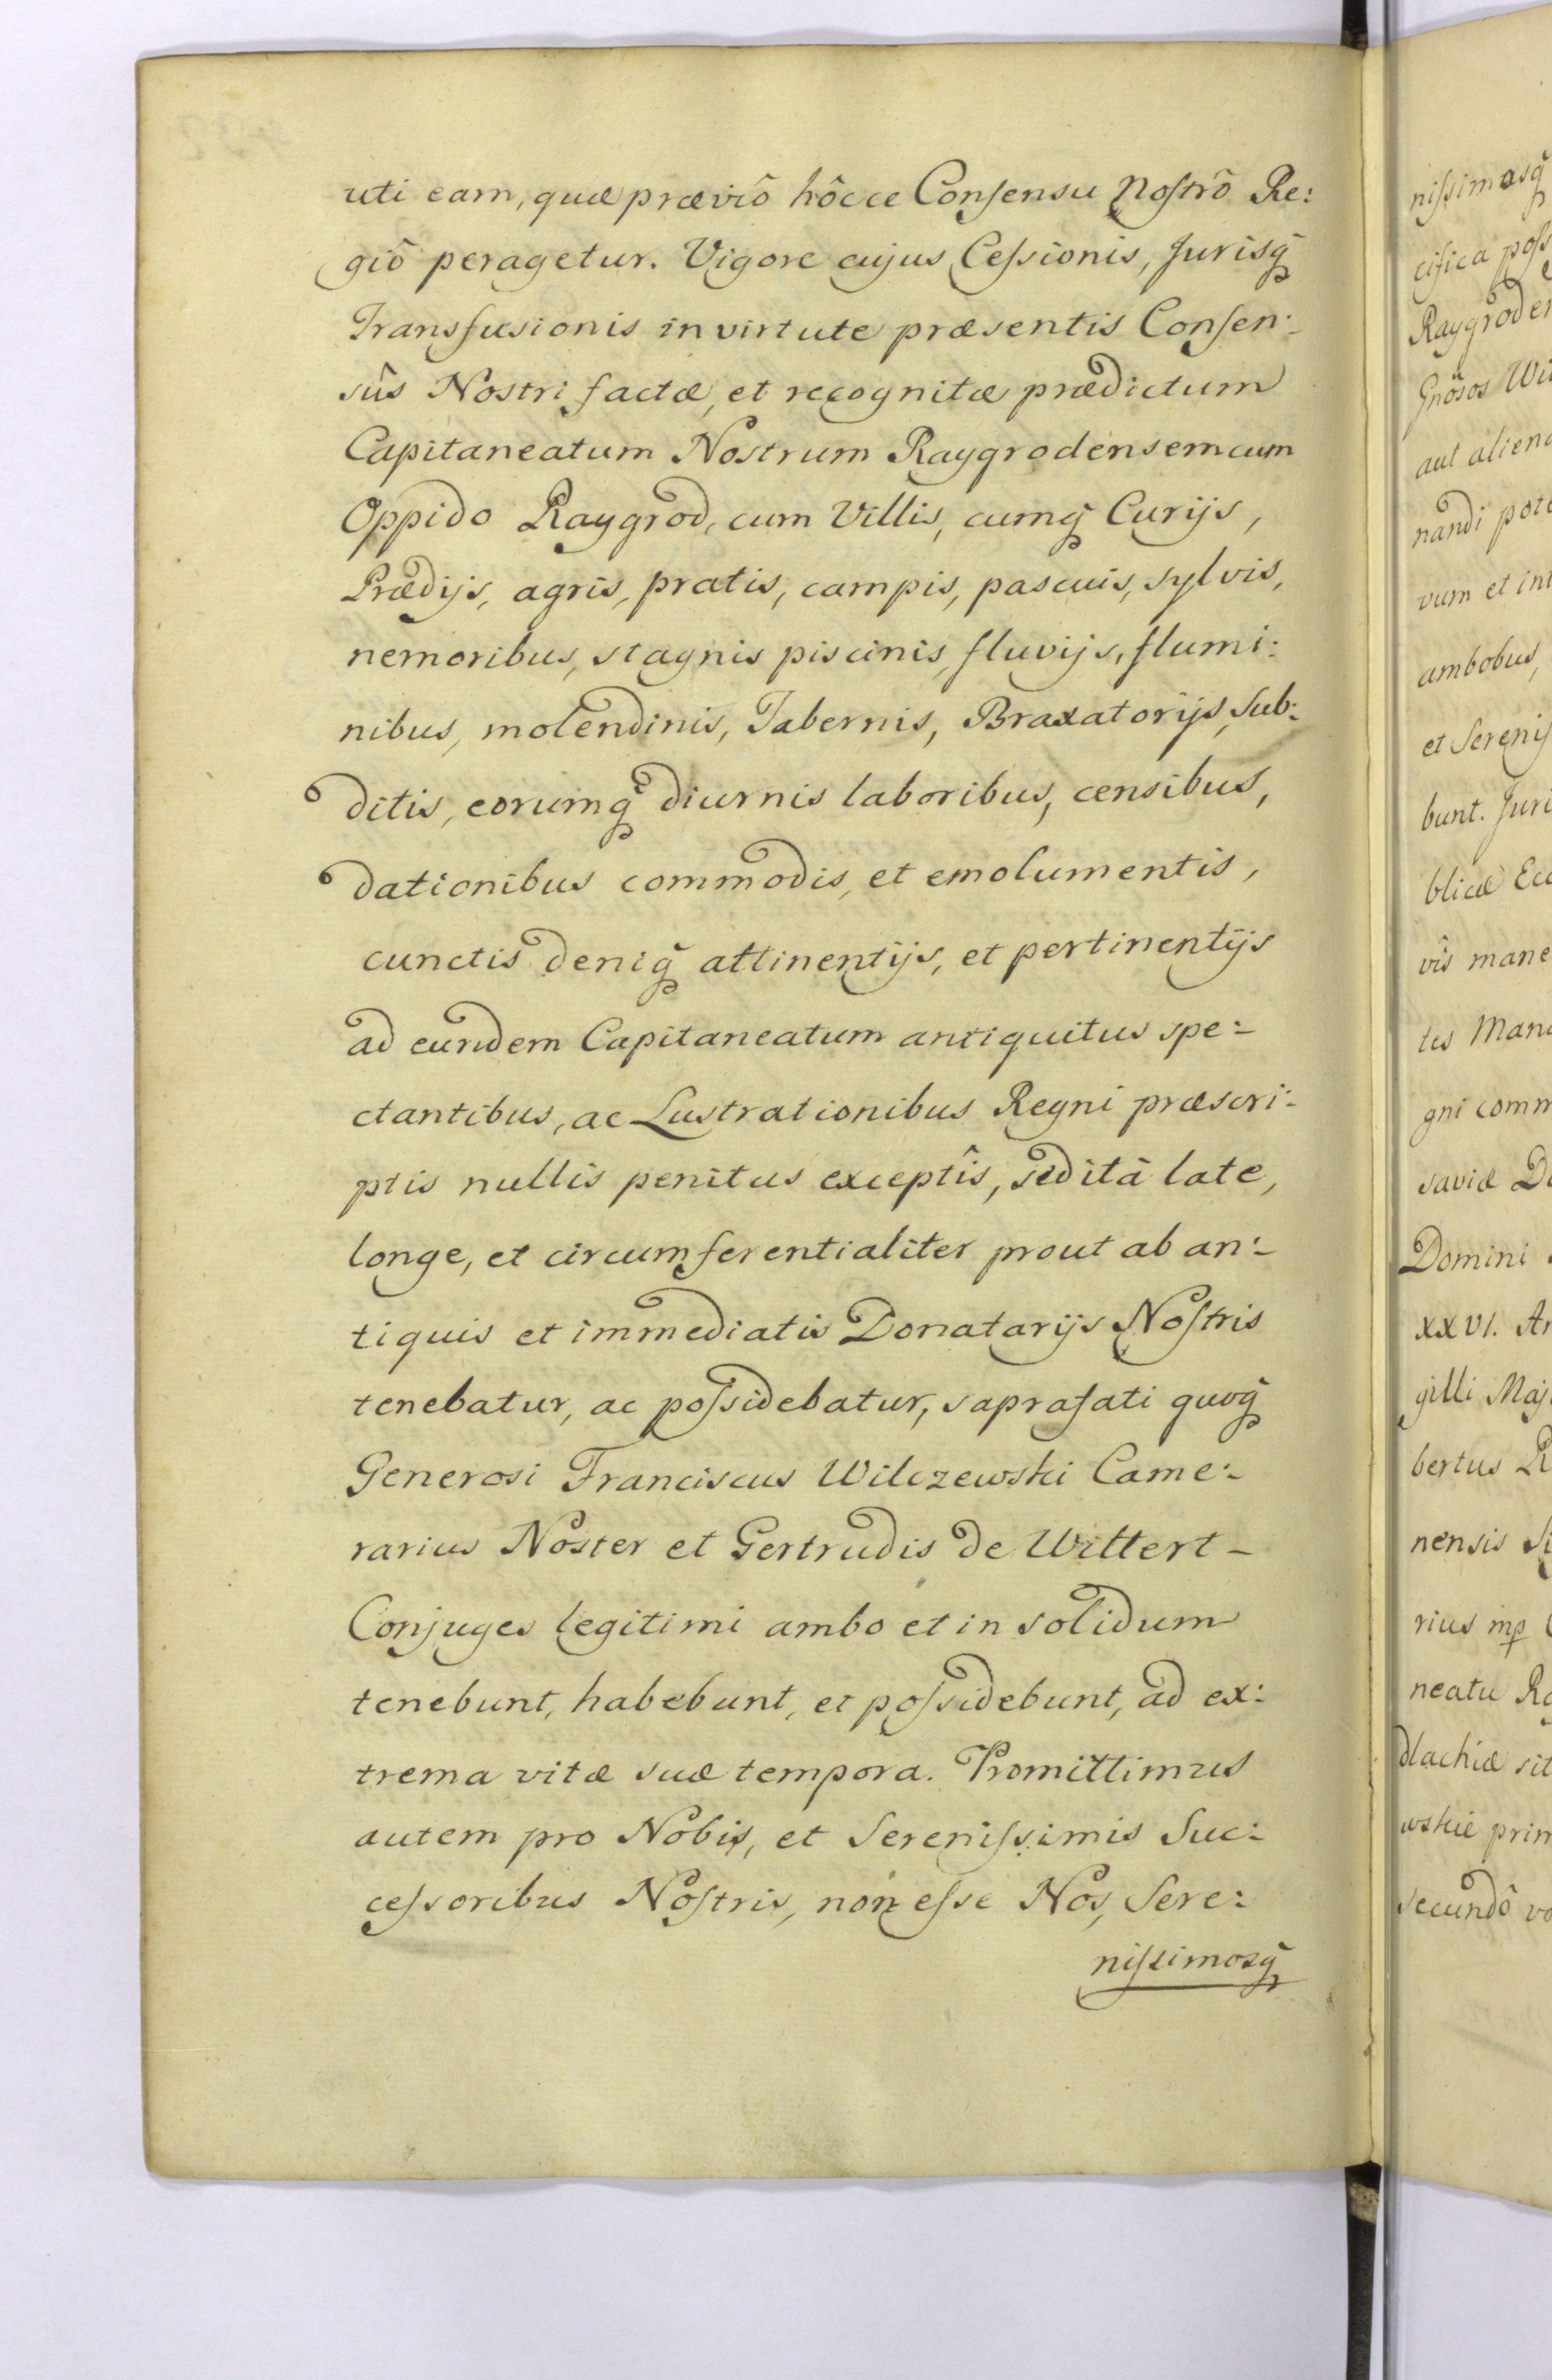 uti eam, quæ præviô hôcce Consensu Nostrô Re:
giô peragetur. Vigore cujus Cessionis, Jurisq̃
Transfusionis in virtute præsentis Consen:
sûs Nostri factæ, et recognitæ prædictum
Capitaneatum Nostrum Raygrodensem cum
Oppido Raygrod, cum Villis, cumq̃ Curijs,
Prædijs, agris, pratis, campis, pascuis, sylvis,
nemoribus, stagnis piscinis, fluvijs, flumi:
nibus, molendinis, Tabernis, Braxatorijs, Sub:
ditis, eorumq̃ diurnis laboribus, censibus,
dationibus commodis, et emolumentis,
cunctis deniq̃ attinentijs, et pertinentijs
ad eundem Capitaneatum antiquitus spe:
ctantibus, ac Lustrationibus Regni præscri:
ptis nullis penitus exceptîs, sed itâ late,
longe, et circumferentialiter prout ab an:
tiquis et immediatis Donatarijs Nostris
tenebatur, ac possidebatur, saprafati quoq̃
Generosi Franciscus Wilczewski Came:
rarius Noster et Gertrudis de Wittert -
Conjuges legitimi ambo et in solidum
tenebunt, habebunt, et possidebunt, ad ex:
trema vitæ suæ tempora. Promittimus
autem pro Nobis, et Serenissimis Suc:
cessoribus Nostris, non esse Nos, Sere:
nissimosq̃
nissimosq̃
cifica poss
Raygroden
Gnôsos Wil
aut aliena
nandi pote
vum et int
ambobus,
et Serenis
bunt. Juri
blicæ Ecc
vîs mane
tes Man
gni comm
saviæ D
Domini
XXVI. An
gilli Maj.
bertus R
nensis Si
rius mp
neatu Ra
dlachiæ sit
wskie prim
secundô vo